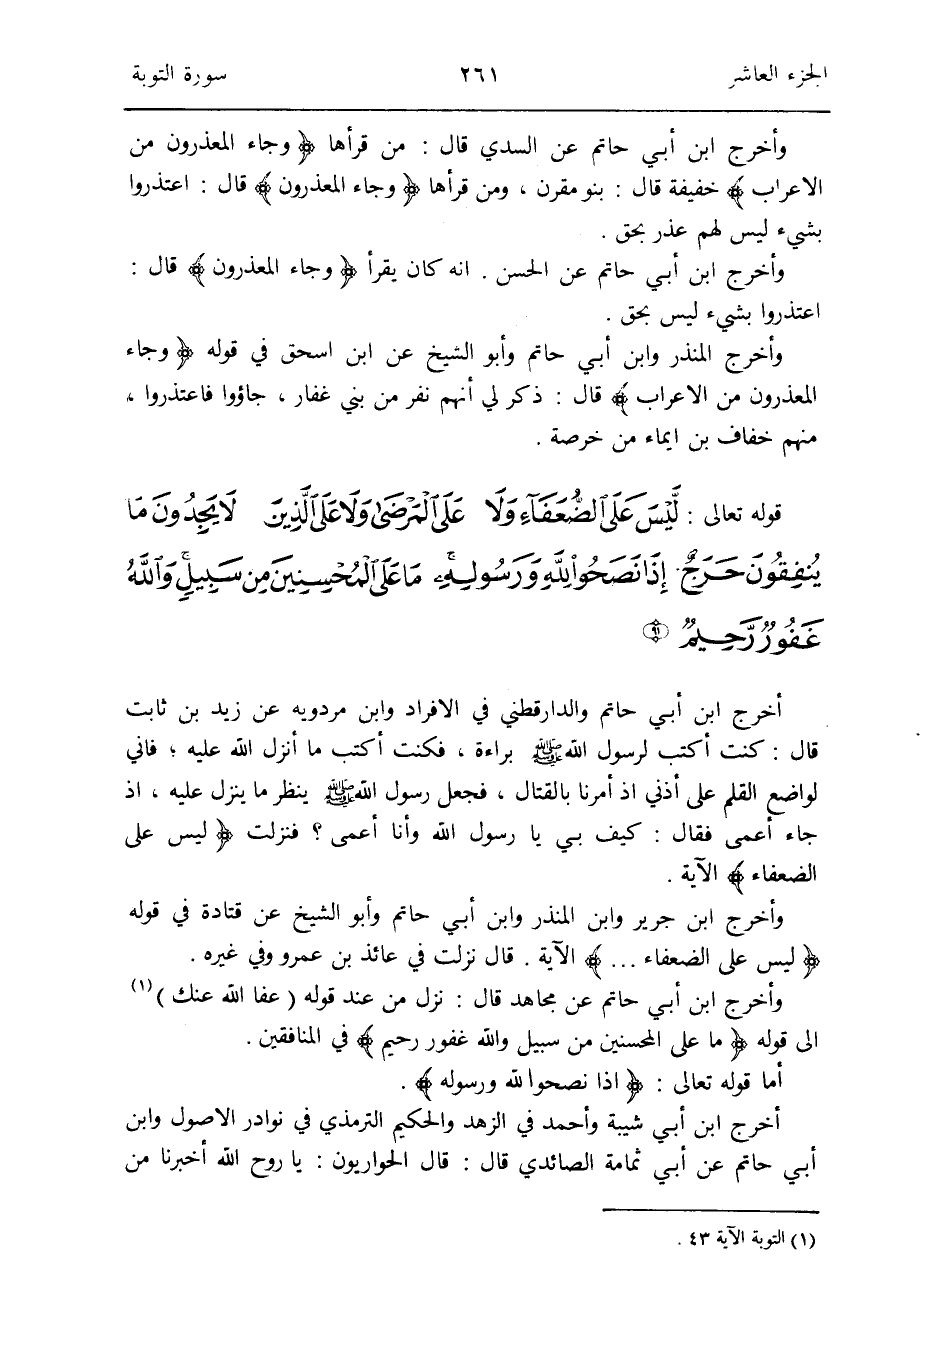 الجزء العاشر ٢٦١ سورة التوبة
وأخرج ابن أبي حاتم عن السدي قال : من قرأها ﴿ وجاء المعذرون من
الاعراب ﴾ خفيفة قال : بنو مقرن ، ومن قرأها ﴿ وجاء المعذرون ﴾ قال : اعتذروا
بشيء ليس لهم عذر بحق .
وأخرج ابن أبي حاتم عن الحسن . انه كان يقرأ ﴿ وجاء المعذرون ﴾ قال :
اعتذروا بشيء ليس بحق .
وأخرج المنذر وابن أبي حاتم وأبو الشيخ عن ابن اسحق في قوله ﴿ وجاء
المعذرون من الاعراب ﴾ قال : ذكر لي أنهم نفر من بني غفار ، جاؤوا فاعتذروا ،
منهم خفاف بن ايماء من خرصة .
قوله تعالى : لَّيْسَ عَلَى الضُّعَفَآءِ وَلَا عَلَى الْمَرْضَىٰ وَلَا عَلَى الَّذِينَ لَا يَجِدُونَ مَا
يُنفِقُونَ حَرَجٌ إِذَا نَصَحُوا۟ لِلَّهِ وَرَسُولِهِۦ ۚ مَا عَلَى الْمُحْسِنِينَ مِن سَبِيلٍ ۚ وَاللَّهُ
غَفُورٌ رَّحِيمٌ ٩١
أخرج ابن أبي حاتم والدارقطني في الافراد وابن مردويه عن زيد بن ثابت
قال : كنت أكتب لرسول الله ﷺ براءة ، فكنت أكتب ما أنزل الله عليه ؛ فاني
لواضع القلم على أذني اذ أمرنا بالقتال ، فجعل رسول الله ﷺ ينظر ما ينزل عليه ، اذ
جاء أعمى فقال : كيف بي يا رسول الله وأنا أعمى ؟ فنزلت ﴿ ليس على
الضعفاء ﴾ الآية .
وأخرج ابن جرير وابن المنذر وابن أبي حاتم وأبو الشيخ عن قتادة في قوله
﴿ ليس على الضعفاء ... ﴾ الآية . قال نزلت في عائذ بن عمرو وفي غيره .
وأخرج ابن أبي حاتم عن مجاهد قال : نزل من عند قوله ( عفا الله عنك )(١)
الى قوله ﴿ ما على المحسنين من سبيل والله غفور رحيم ﴾ في المنافقين .
أما قوله تعالى : ﴿ اذا نصحوا لله ورسوله ﴾ .
أخرج ابن أبي شيبة وأحمد في الزهد والحكيم الترمذي في نوادر الاصول وابن
أبي حاتم عن أبي ثمامة الصائدي قال : قال الحواريون : يا روح الله أخبرنا من
(١) التوبة الآية ٤٣ .